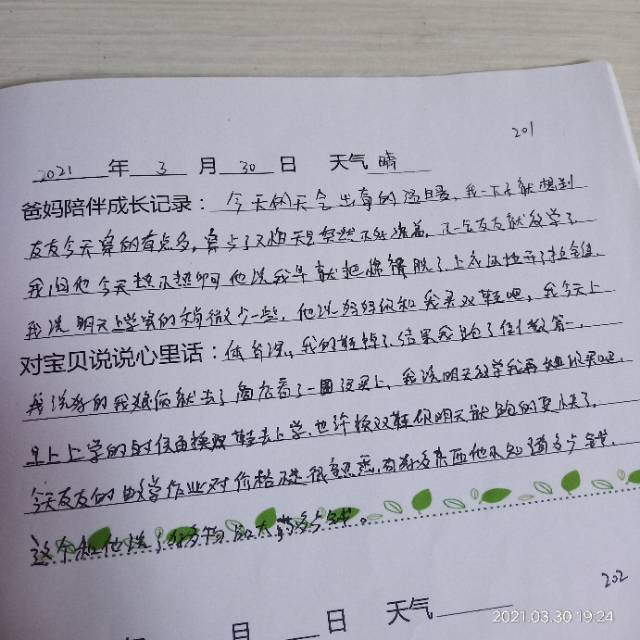 201
2021 年 3 月 30 日 天气 晴
爸妈陪伴成长记录：今天的天气出奇的温暖，我一下子就想到
友友今天穿的有点多，穿多了又怕天气突然，一会友友就放学了
我问他今天热不热啊他说我早就把棉褂脱了上衣
我说明天上学穿的稍微少一些，他说妈妈你给我买双鞋吧，我今天上
对宝贝说说心里话：体育课，我的鞋掉了，结果我跑了倒数第一，
我说好的我们就去了商店看了一圈没买上，我说明天放学我再
早上上学的时候再换双鞋去上学，也许换双鞋你明天就跑的更快了，
今天友友的数学作业对价格不是很熟悉，有好多东西他不知道多少钱，
这个和他说了
202
年 月 日 天气
2021.03.30 19:24